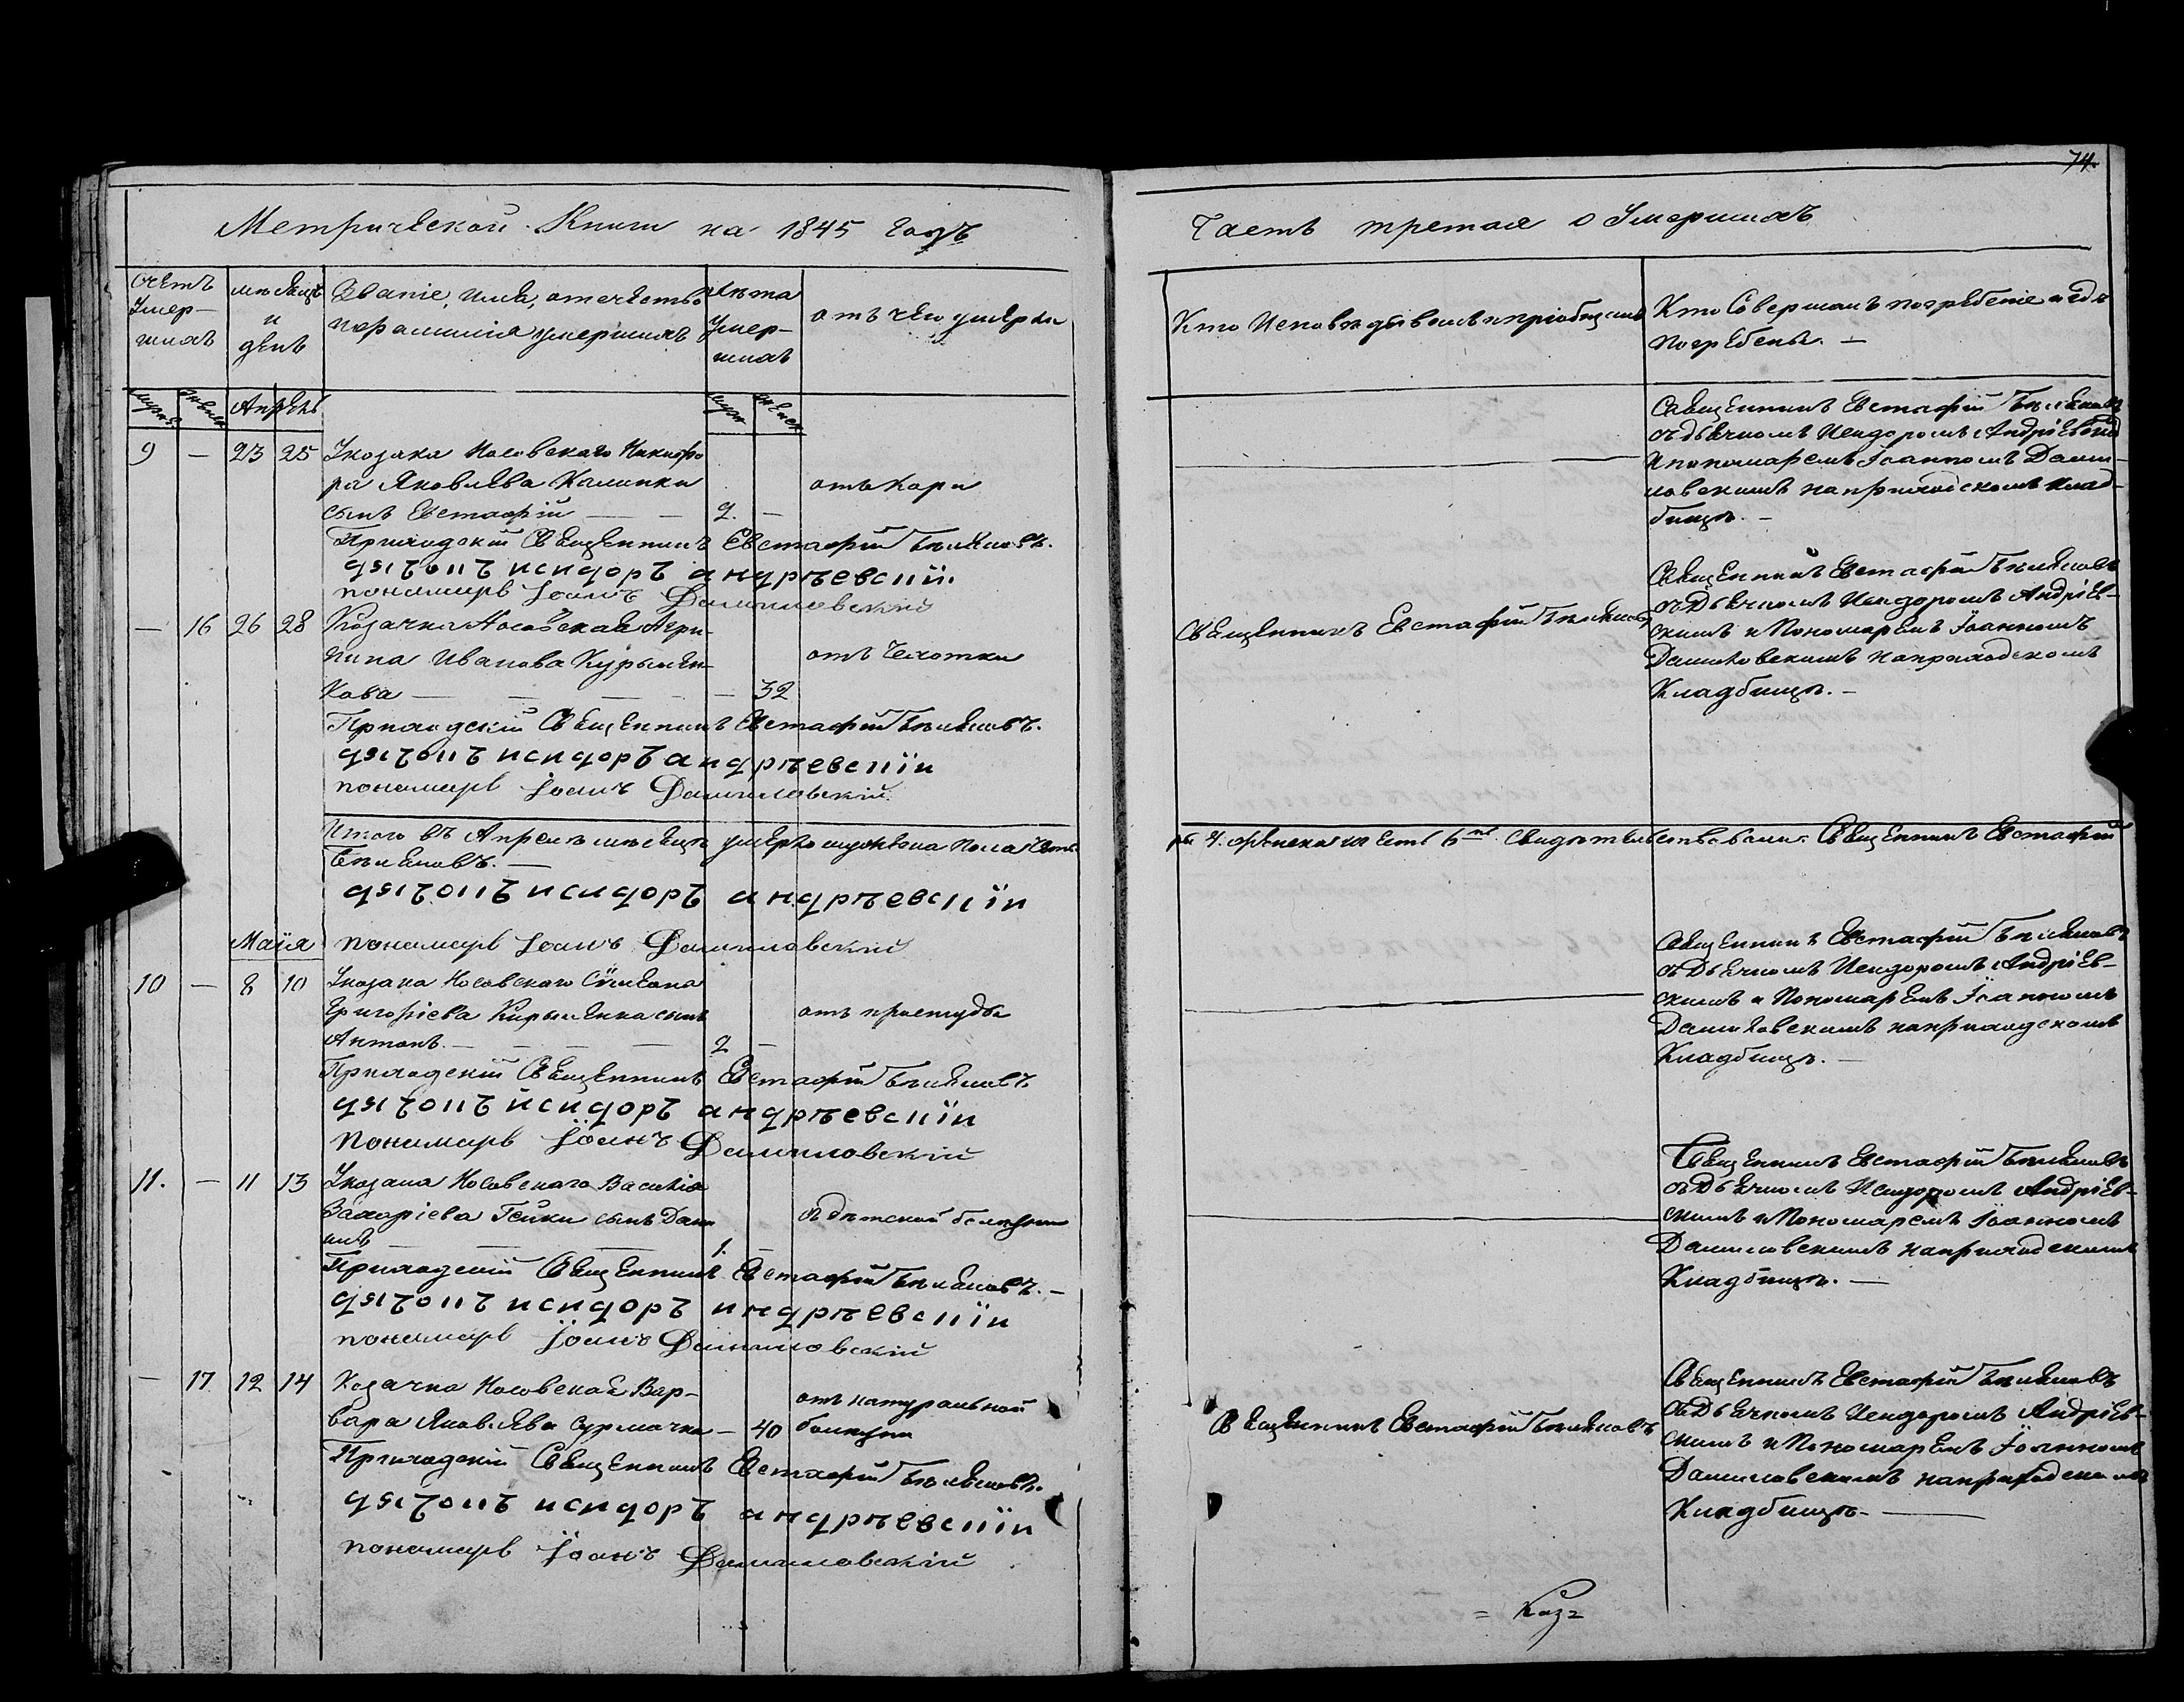 74.
Метрической Книги на 1845 годъ
Часть третая о Умершихъ
счетъ Умер-шихъ
мѣсяцъ и день
Званіе, имя, отечество и фамилія умершихъ
лѣта Умер-шихъ
отъ чего умерли
Кто Исповѣдывалъ и пріобщалъ
Кто Совершалъ погребеніе и гдѣ погребены. —
Апрель
9 — 23 25 Укозака Носовскаго Никифо
ра Яковлева Калинки
сынъ Евстафій — — 2. —
отъ Кори
Священникъ Евстафій Бѣляновъ
съ дьячкомъ Исидоромъ Андріевскимъ
и пономаремъ Іоанномъ Дани-
ловскимъ наприходскомъ клад-
бищѣ. —
Приходскій Священникъ Евстафій Бѣляновъ.
дячокъ исидоръ андрѣевскій.
пономарь Іоанъ Даниловскій
— 16 26 28 Козачка Носовская Агри-
пина Иванова Курилен-
кова — — — — — 32
отъ Чехотки
Священникъ Евстафій Бѣляновъ
Священникъ Евстафій Бѣляновъ
съ Дьячкомъ Исидоромъ Андріев-
скимъ и Пономаремъ Іоанномъ
Даниловскимъ наприходскомъ
Кладбищѣ. —
Приходскій Священникъ Евстафій Бѣляновъ.
дячокъ исидоръ андрѣевскій
пономарь Іоанъ Даниловскій.
Итого въ Апрелѣ мѣсяцѣ умерло мужеска пола четы
ры 4. женска шесть 6ть Свидѣтельствовали: Священникъ Евстафій
Бѣляновъ. —
дячокъ исидоръ андрѣевскій
Маія
пономарь Іоанъ Даниловскій
10 — 8 10 Укозака Носовскаго Сѵмеона
Григоріева Кириленка сынъ
Антонъ. — — — — 2 —
отъ простуды
Священникъ Евстафій Бѣляновъ
съ Дьячкомъ Исидоромъ Андріев-
скимъ и Пономаремъ Іоанномъ
Даниловскимъ наприходскомъ
Кладбищѣ. —
Приходскій Священникъ Евстафій Бѣляновъ
дячокъ исидоръ андрѣевскій
пономарь Іоанъ Даниловскій
11. — 11 13 Укозака Носовскаго Василія
Захаріева Гейки сынъ Дани
илъ — — — 1. —
отъ дѣтской болезни
Священникъ Евстафій Бѣляновъ
съ Дьячкомъ Исидоромъ Андріев-
скимъ и Пономаремъ Іоанномъ
Даниловскимъ наприходскомъ
Кладбищѣ. —
Приходскій Священникъ Евстафій Бѣляновъ. —
дячокъ исидоръ андрѣевскій
пономарь Іоанъ Даниловскій
— 17 12 14 Козачка Носовская Вар-
вара Яковлева Сурмачка — 40
отъ натуральной
болезни
Священникъ Евстафій Бѣляновъ
Священникъ Евстафій Бѣляновъ
съ Дьячкомъ Исидоромъ Андріев-
скимъ и Пономаремъ Іоанномъ
Даниловскимъ наприходскомъ
Кладбищѣ. —
Приходскій Священникъ Евстафій Бѣляновъ.
дячокъ исидоръ андрѣевскій
пономарь Іоанъ Даниловскій
= Коз=